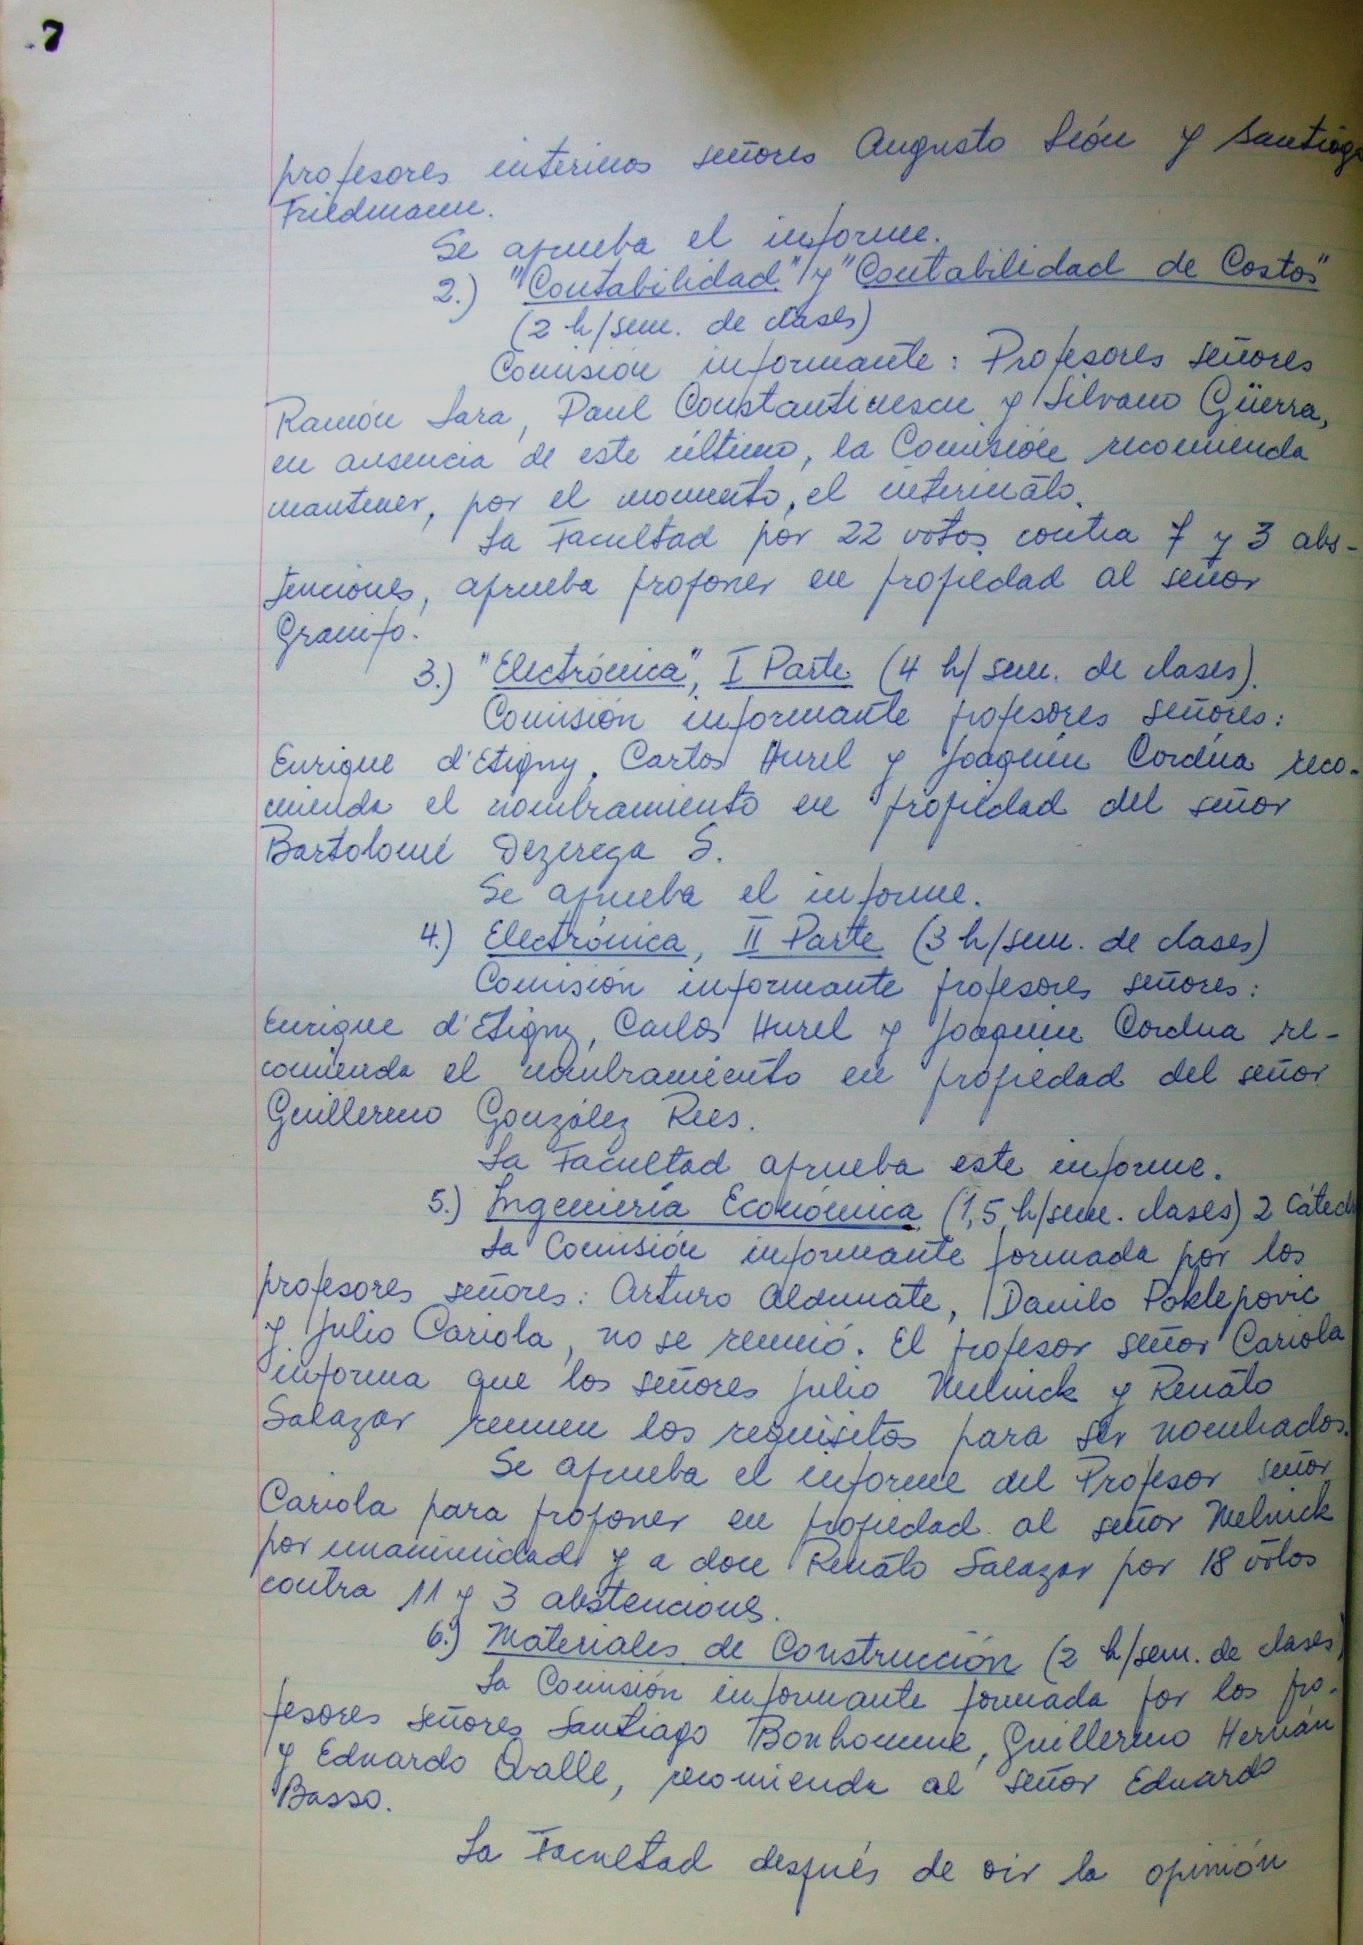 7
profesores interinos señores Augusto León y Santiago
Friedmann.
Se aprueba el informe.
2.) "Contabilidad" y "Contabilidad de Costos"
(2 h/sem. de clases)
Comisión informante: Profesores señores
Ramón Lara, Paul Constantinescu y Silvano Güerra,
en ausencia de este último, la Comisión recomienda
mantener, por el momento, el interinato.
La Facultad por 22 votos contra 7 y 3 abs-
tenciones, aprueba proponer en propiedad al señor
Granifo.
3.) "Electrónica", I Parte (4 h/sem. de clases).
Comisión informante profesores señores:
Enrique d'Etigny, Carlos Hurel y Joaquín Cordúa reco-
mienda el nombramiento en propiedad del señor
Bartolomé Dezerega S.
Se aprueba el informe.
4.) Electrónica, II Parte (3 h/sem. de clases)
Comisión informante profesores señores:
Enrique d'Etigny, Carlos Hurel y Joaquín Cordua re-
comienda el nombramiento en propiedad del señor
Guillermo González Rees.
La Facultad aprueba este informe.
5.) Ingeniería Económica (1,5 h/sem. clases) 2 cáted
La Comisión informante formada por los
profesores señores: Arturo Aldunate, Danilo Poklepovic
y Julio Cariola, no se reunió. El profesor señor Cariola
informa que los señores Julio Melnick y Renato
Salazar reunen los requisitos para ser nombrados.
Se aprueba el informe del Profesor señor
Cariola para proponer en propiedad al señor Melnick
por unanimidad y a don Renato Salazar por 18 votos
contra 11 y 3 abstenciones.
6.) Materiales de Construcción (2 h/sem. de clases)
La Comisión informante formada por los pro-
fesores señores Santiago Bonhomme, Guillermo Hernán
y Eduardo Ovalle, recomienda al señor Eduardo
Basso.
La Facultad después de oir la opinión